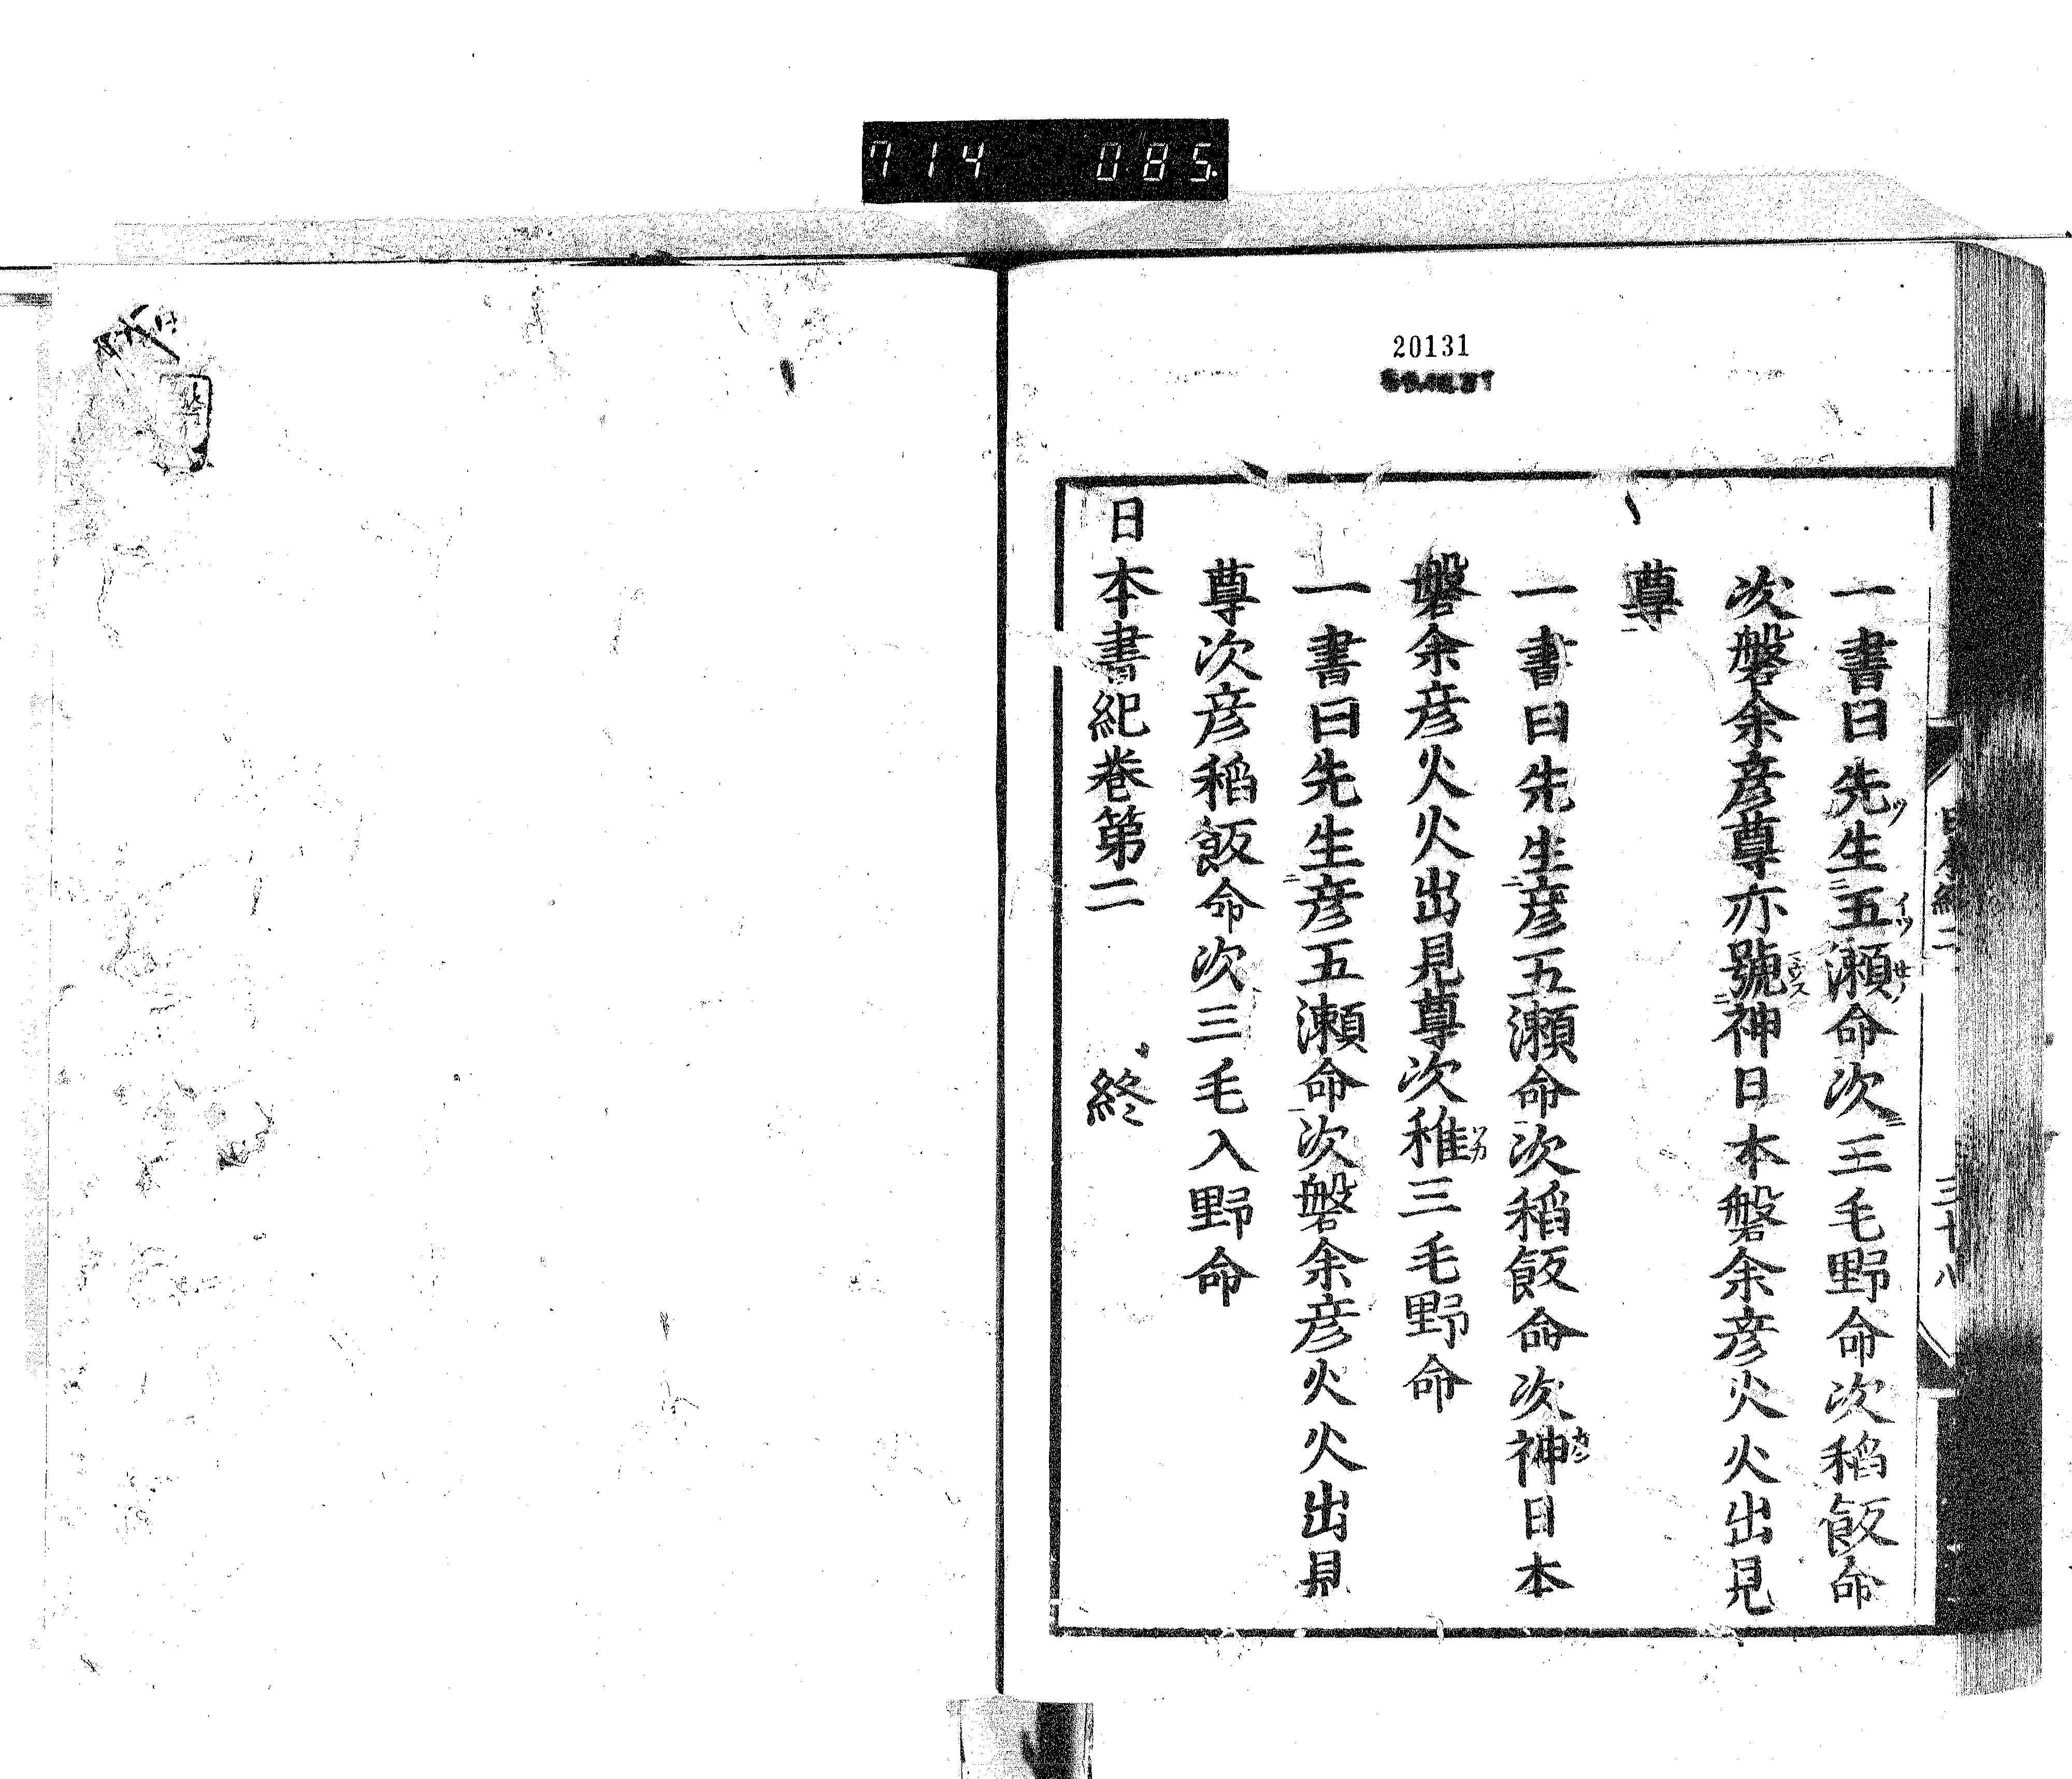 714 085
20131
一書曰先生五瀬命次三毛野命次稻飯命
次磐余彦尊亦號神日本磐余彦火火出見
尊
一書曰先生彦五瀬命次稻飯命次神日本
磐余彦火火出見尊次稚三毛野命
一書曰先生彦五瀬命次磐余彦火火出見
尊次彦稻飯命次三毛入野命
日本書紀巻第二 終
三十八